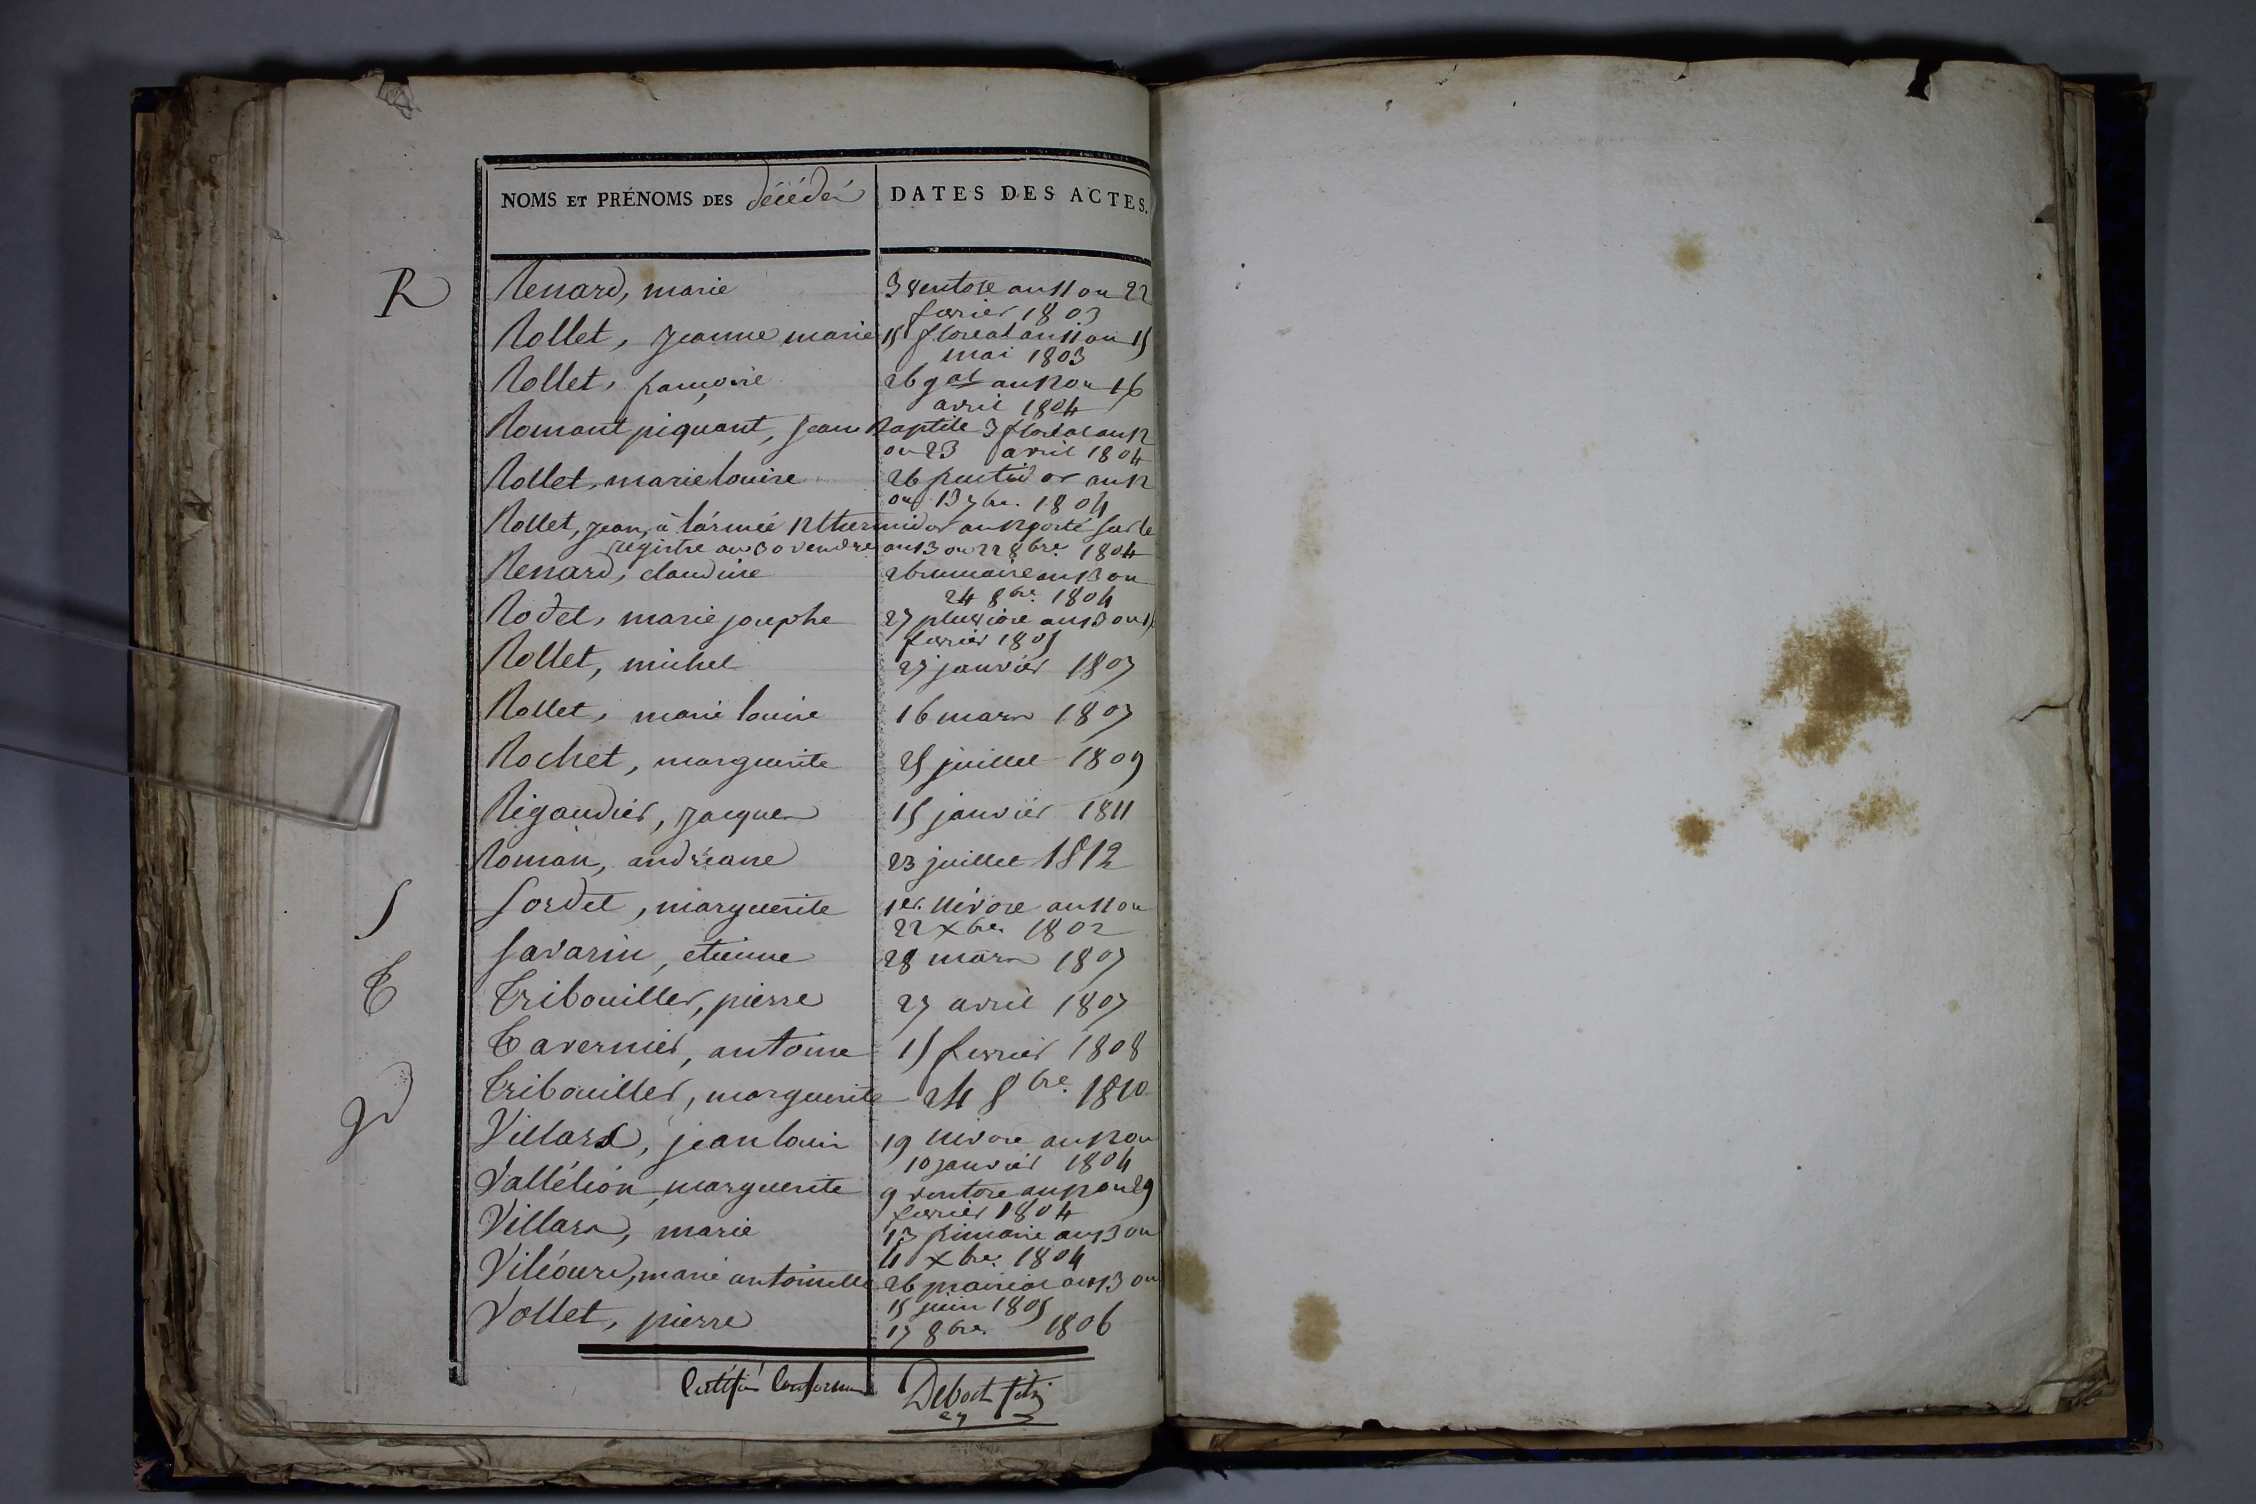 NOMS ET PRÉNOMS DES décédés DATES DES ACTES.
R Renard, marie 3 ventose an 11 ou 22
fevrier 1803
Rollet, jeanne marie 15 floreal an 11 ou 15
mai 1803
Rollet, françoise 26 g.al an 12 ou 16
avril 1804
Romant piquant, jean Baptite 3 floreal an 12
ou 23 avril 1804
Rollet, marie louise 26 fructidor an 12
ou 13 7bre. 1804
Rollet, jean, à l'armée 12 thermidor an 12 porté sur le
registre au 30 vendre. an 13 ou 22 8bre. 1804
Renard, claudine 2 brumaire an 13 ou
24 8bre. 1804
Rodet, marie josephe 27 pluviose an 13 ou
fevrier 1805
Rollet, michel 27 janvier 1807
Rollet, marie louise 16 mars 1807
Rochet, marguerite 25 juillet 1809
Rigaudier, jacques 15 janvier 1811
Roman, andréane 23 juillet 1812
S Sordet, marguerite 1er. nivose an 11 ou
22 Xbre. 1802
Savarin, etienne 28 mars 1807
T Tribouiller, pierre 27 avril 1807
Tavernier, antoine 15 fevrier 1808
Tribouiller, marguerite 24 8bre. 1810
V Villars, jean louis 19 nivose an 12 ou
10 janvier 1804
Vallélion, marguerite 9 ventose an 12 ou 29
fevrier 1804
Villars, marie 13 frimaire an 13 ou
4 Xbre. 1804
marie antoinette 26 prairial an 13 ou
15 juin 1805
Vollet, pierre 17 8bre. 1806
Certifié Conforme